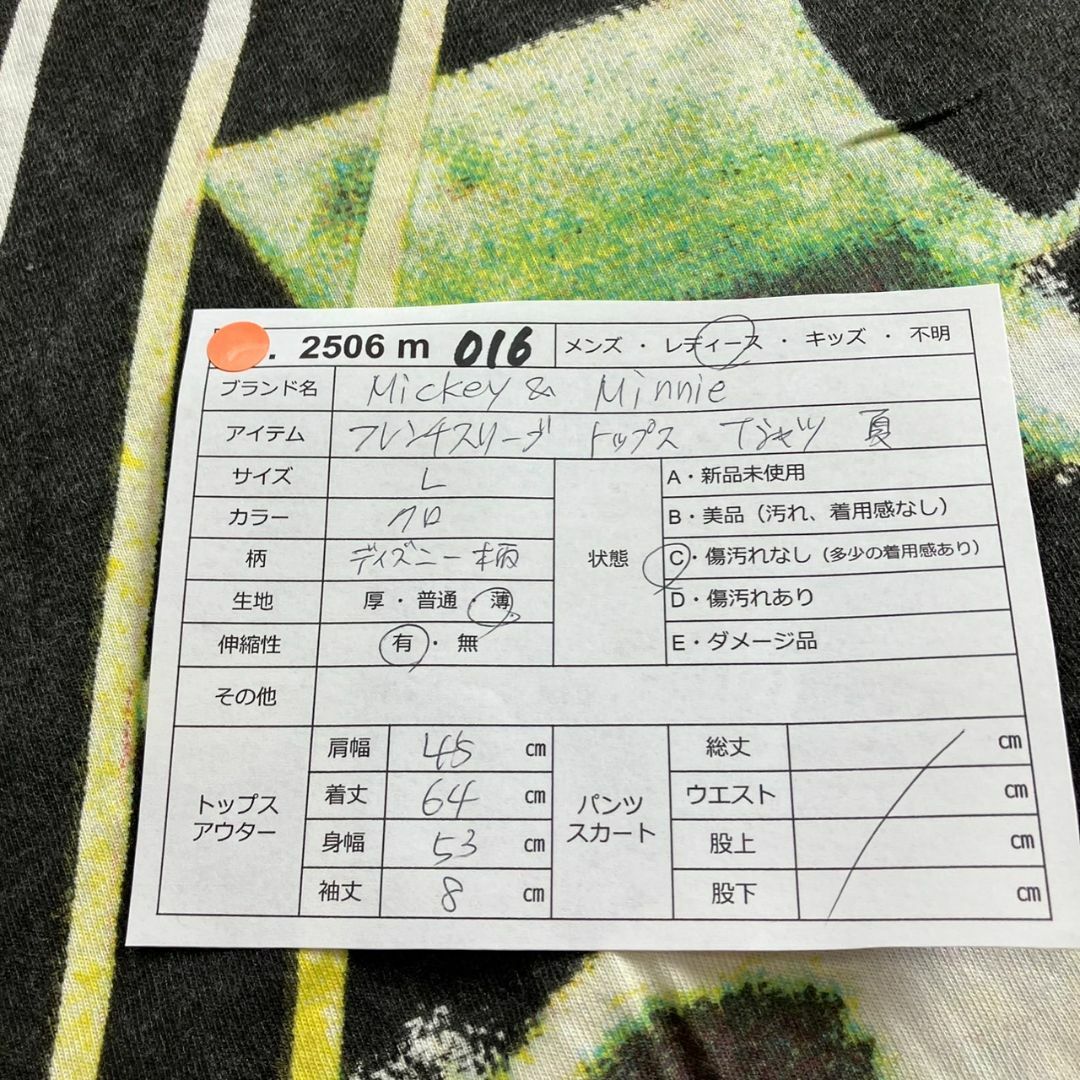 . 2506 m 016 メンズ ・ レディース ・ キッズ ・ 不明
ブランド名 Mickey & Minnie
アイテム フレンチスリーブ トップス Tシャツ 夏
サイズ L
カラー クロ
柄 ディズニー柄
生地 厚 ・ 普通 ・ 薄
伸縮性 有 ・ 無
状態
A・新品未使用
B・美品（汚れ、着用感なし）
C・傷汚れなし（多少の着用感あり）
D・傷汚れあり
E・ダメージ品
その他
トップス
アウター
肩幅 45 cm
着丈 64 cm
身幅 53 cm
袖丈 8 cm
パンツ
スカート
総丈 cm
ウエスト cm
股上 cm
股下 cm